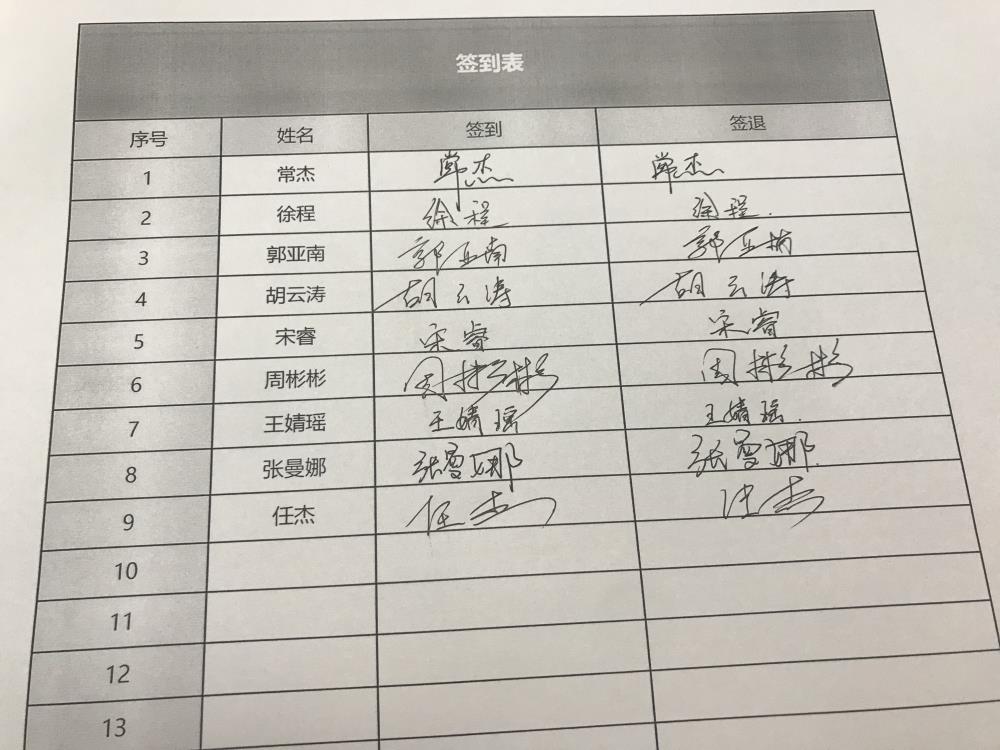 签到表
序号 姓名 签到 签退
1 常杰 常杰 常杰
2 徐程 徐程 徐程.
3 郭亚南 郭亚南 郭亚楠
4 胡云涛 胡云涛 胡云涛
5 宋睿 宋睿 宋睿
6 周彬彬 周彬彬 周彬彬
7 王婧瑶 王婧瑶 王婧瑶.
8 张曼娜 张曼娜 张曼娜.
9 任杰 任杰 任杰
10
11
12
13